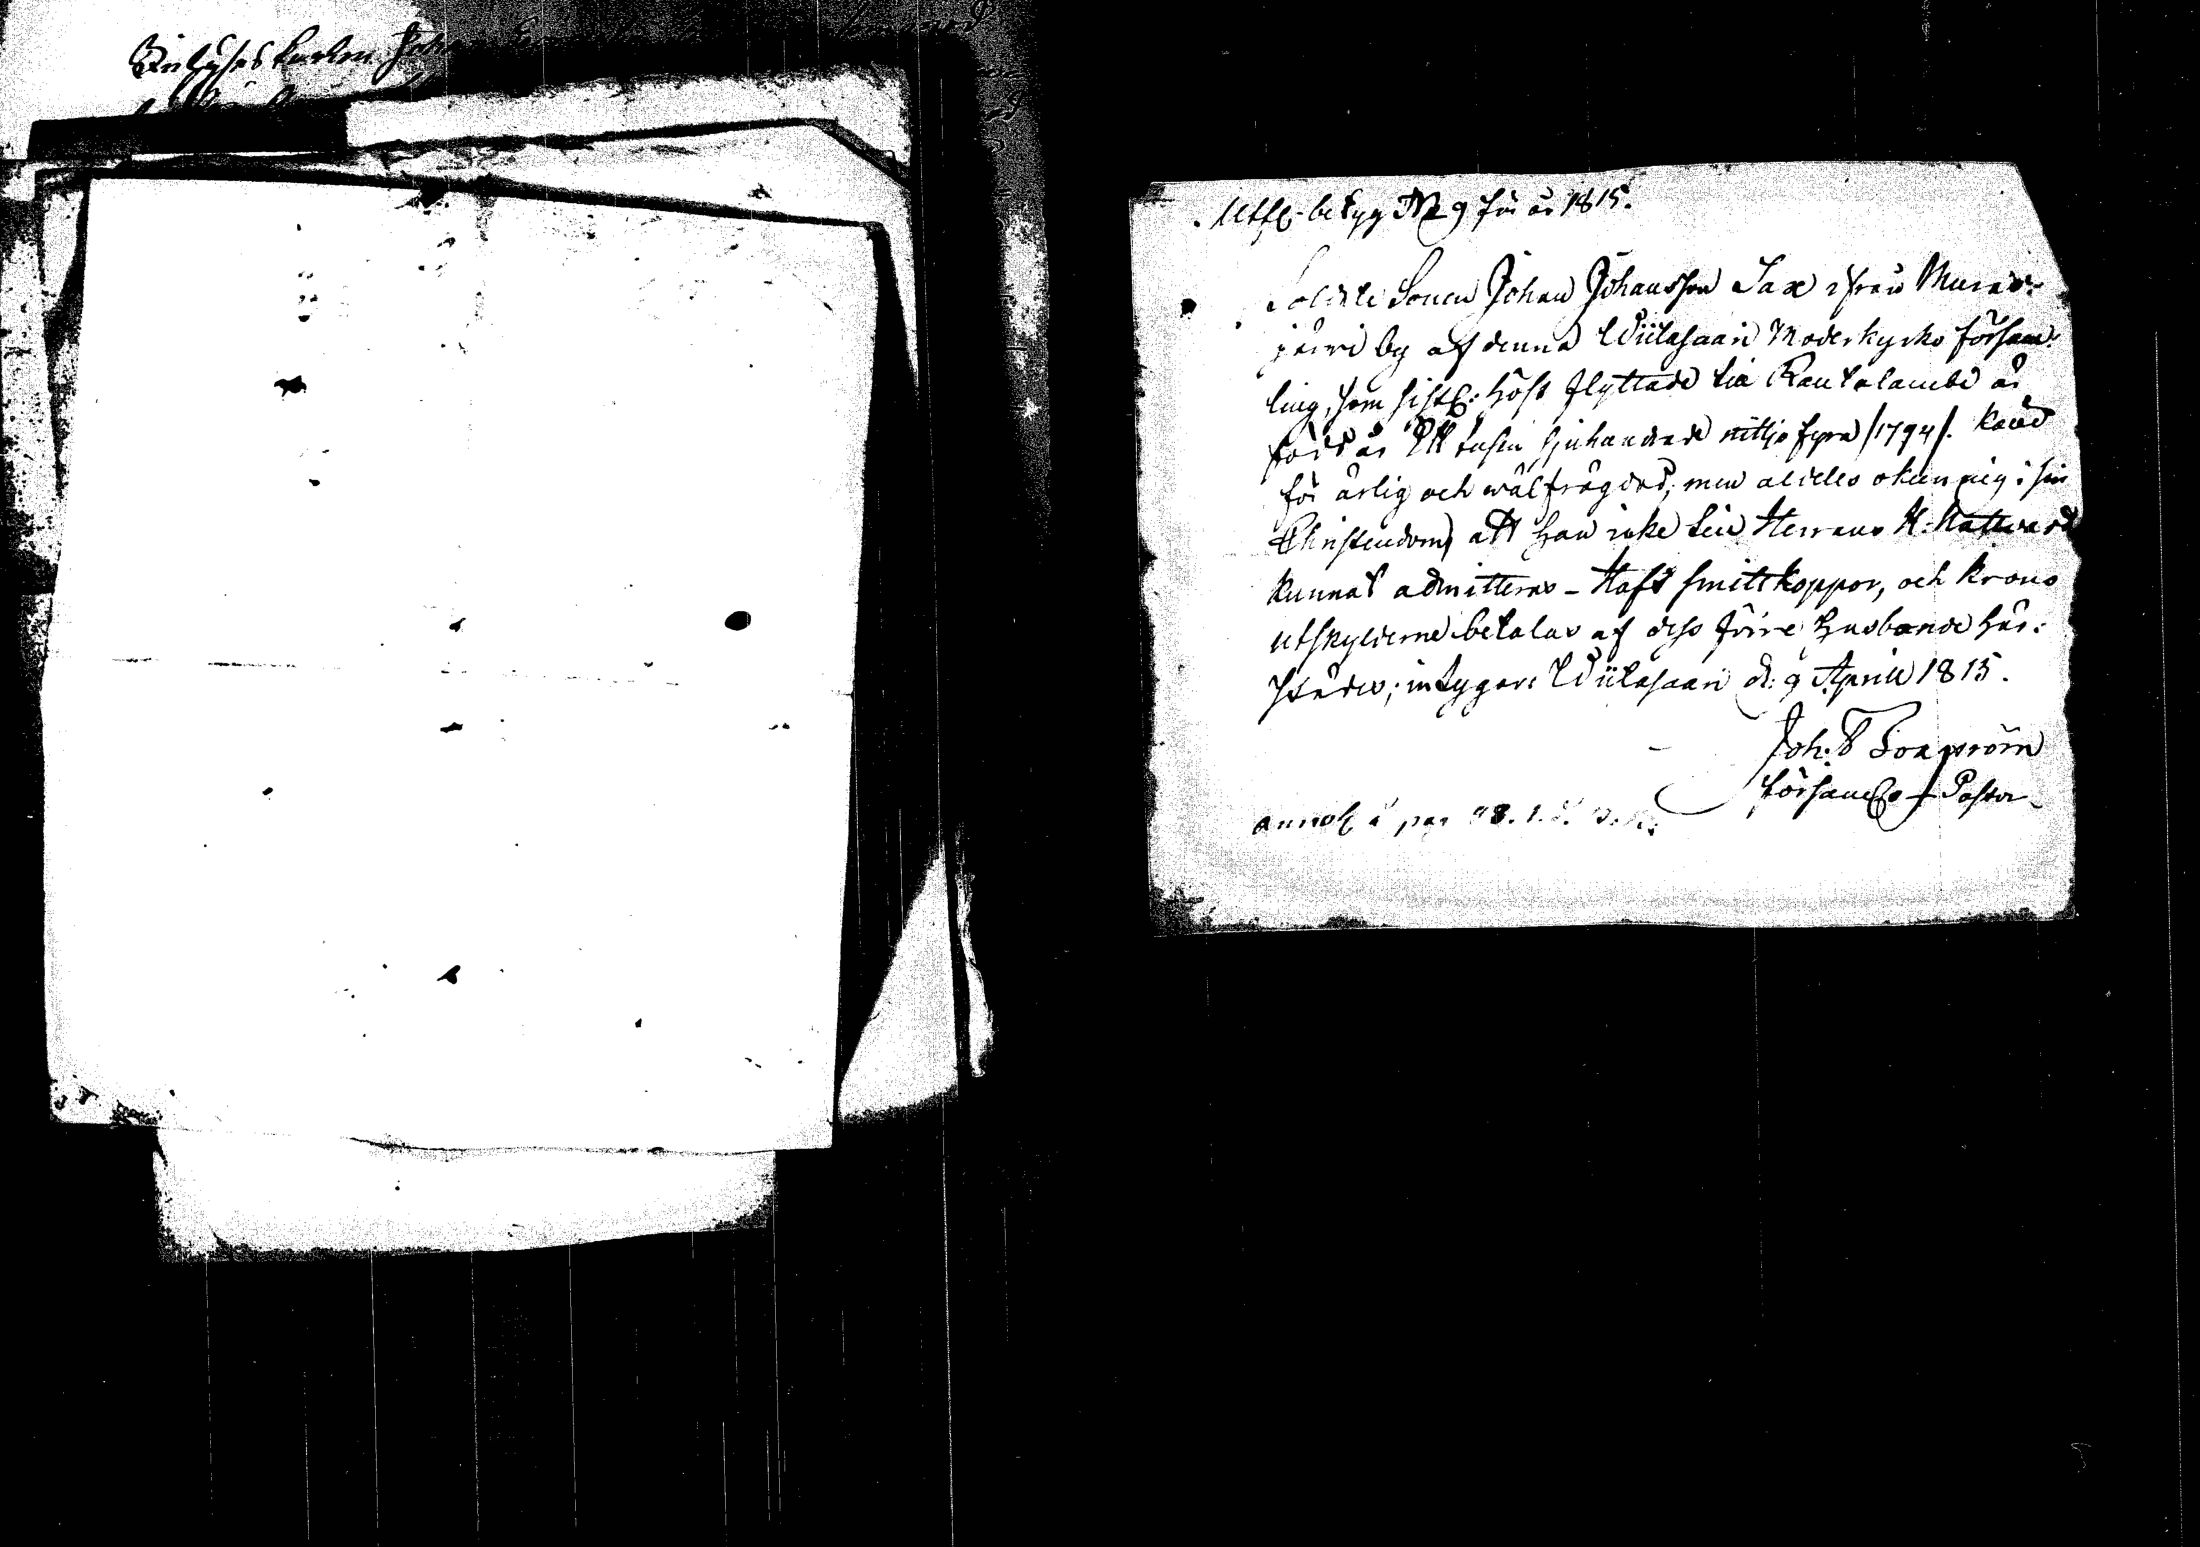 Utfl. betyg № 9 för år 1815.
Soldate Sonen Johan Johansson Sax ifrån Muras-
järvi by af denna Wiitasaari Moderkyrko församl-
ling, som sistl: höst flyttade till Rautalambi är
född år Ett tusen sjuhundrade nittjo fyra /1794/. känd
för ärlig och wälfrägdad; men aldeles okunnig i sin
Christendom, att han icke till Herrans H. Nattward
kunnat admitteras – Haft smittkoppor, och krono
utskylderne betalas af dess förre husbonde här-
städes; intygar: Wiitasaari d: 9 April 1815.
Joh:
församls Pastor
annot: å pag
Johan